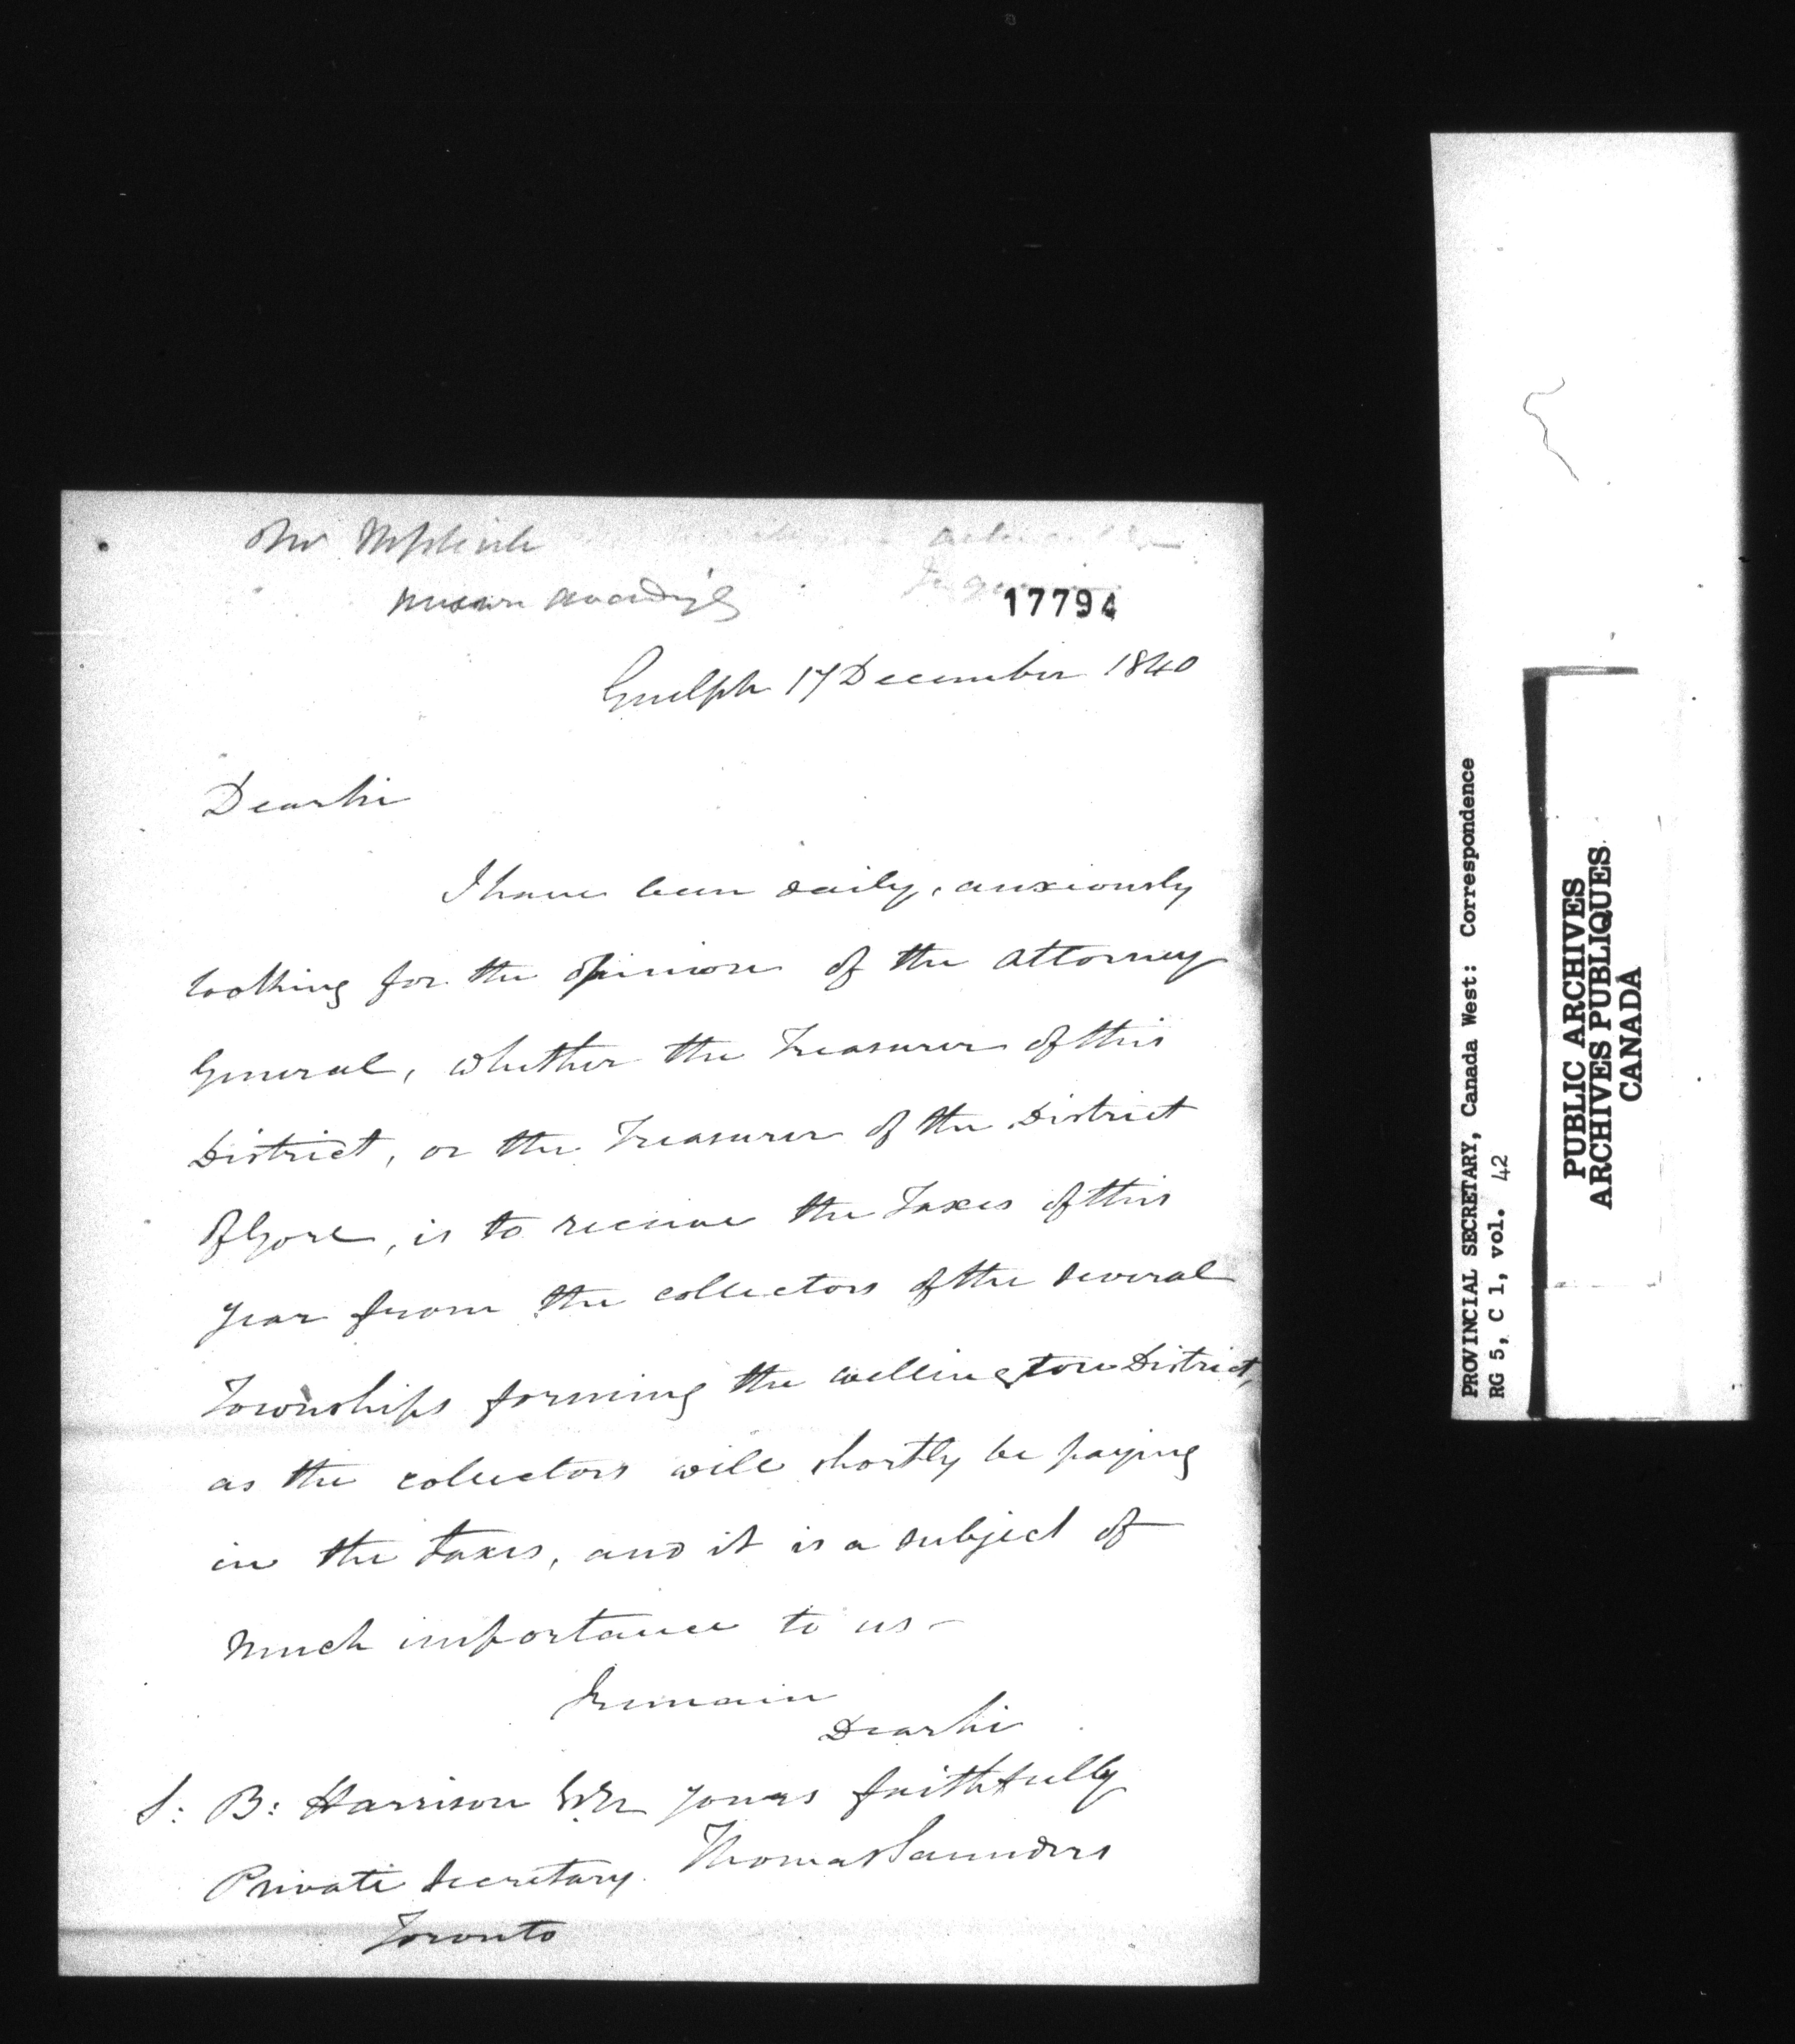 Mr
accordingly
17794
Guelph 17 December 1840
Dear Sir
I have been daily, anxiously
looking for the opinion of the Attorney
General, whether the Treasurer of this
District, or the Treasurer of the District
of Gore, is to receive the Taxes of this
year from the collectors of the several
Townships forming the Wellington District,
as the collectors will shortly be paying
in the taxes, and it is a subject of
much importance to us –
I remain
Dear Sir
S: B: Harrison Esqr yours faithfully
Private Secretary. Thomas Saunders
Toronto
PROVINCIAL SECRETARY, Canada West: Correspondence
RG 5, C 1, vol. 42
PUBLIC ARCHIVES
ARCHIVES PUBLIQUES
CANADA